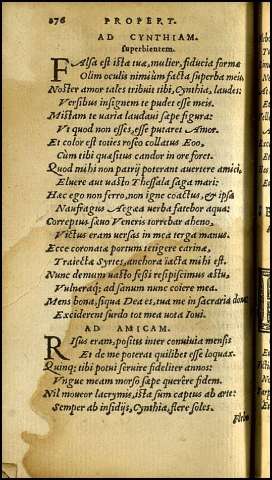 276 PROPERT.
AD CYNTHIAM.
ſuperbientem.
FAlſa eſt iſta tua, mulier, fiducia formæ
Olim oculis nimiùm facta ſuperba meis.
Noſter amor tales tribuit tibi, Cynthia, laudes:
Verſibus inſignem te pudet eſſe meis.
Miſtam te uaria laudaui ſæpe figura:
Vt quod non eſſes, eſſe putaret Amor.
Et color eſt toties roſeo collatus Eoo,
Cum tibi quæſitus candor in ore foret.
Quod mihi non patrij poterant auertere amici,
Eluere aut uaſto Theſſala ſaga mari:
Hæc ego non ferro, non igne coactus, & ipſa
Naufragus Aegæa uerba fatebor aqua:
Correptus ſæuo Veneris torrebar aheno,
Victus eram uerſas in mea terga manus.
Ecce coronatæ portum tetigere carinæ,
Traiectæ Syrtes, anchora iacta mihi eſt.
Nunc demum uaſto feſſi reſipiſcimus æſtu,
Vulneraq; ad ſanum nunc coiere mea.
Mens bona, ſiqua Dea es, tua me in ſacraria dono:
Exciderent ſurdo tot mea uota Ioui.
AD AMICAM.
RIſus eram, poſitis inter conuiuia menſis
Et de me poterat quilibet eſſe loquax.
Quinq; tibi potui ſeruire fideliter annos:
Vngue meam morſo ſæpe querere fidem.
Nil moueor lacrymis, iſta ſum captus ab arte:
Semper ab inſidijs, Cynthia, flere ſoles.